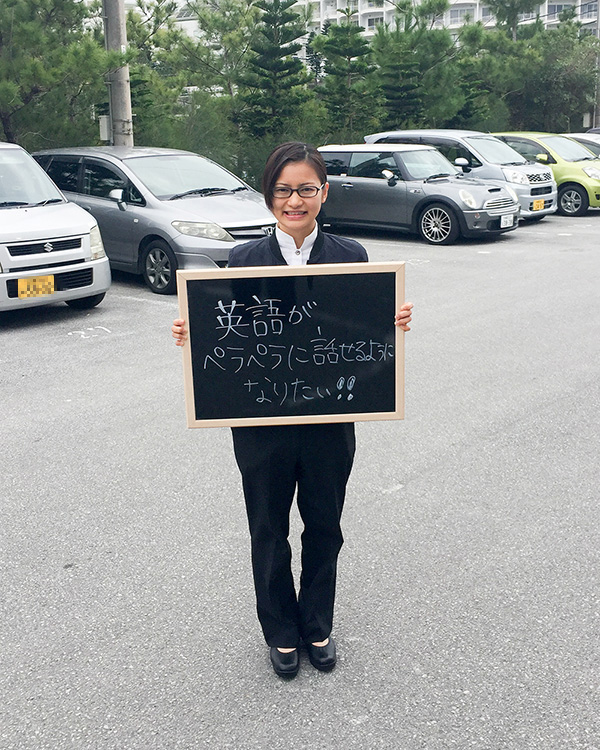 英語が、
ペラペラに話せるように
なりたい!!
27